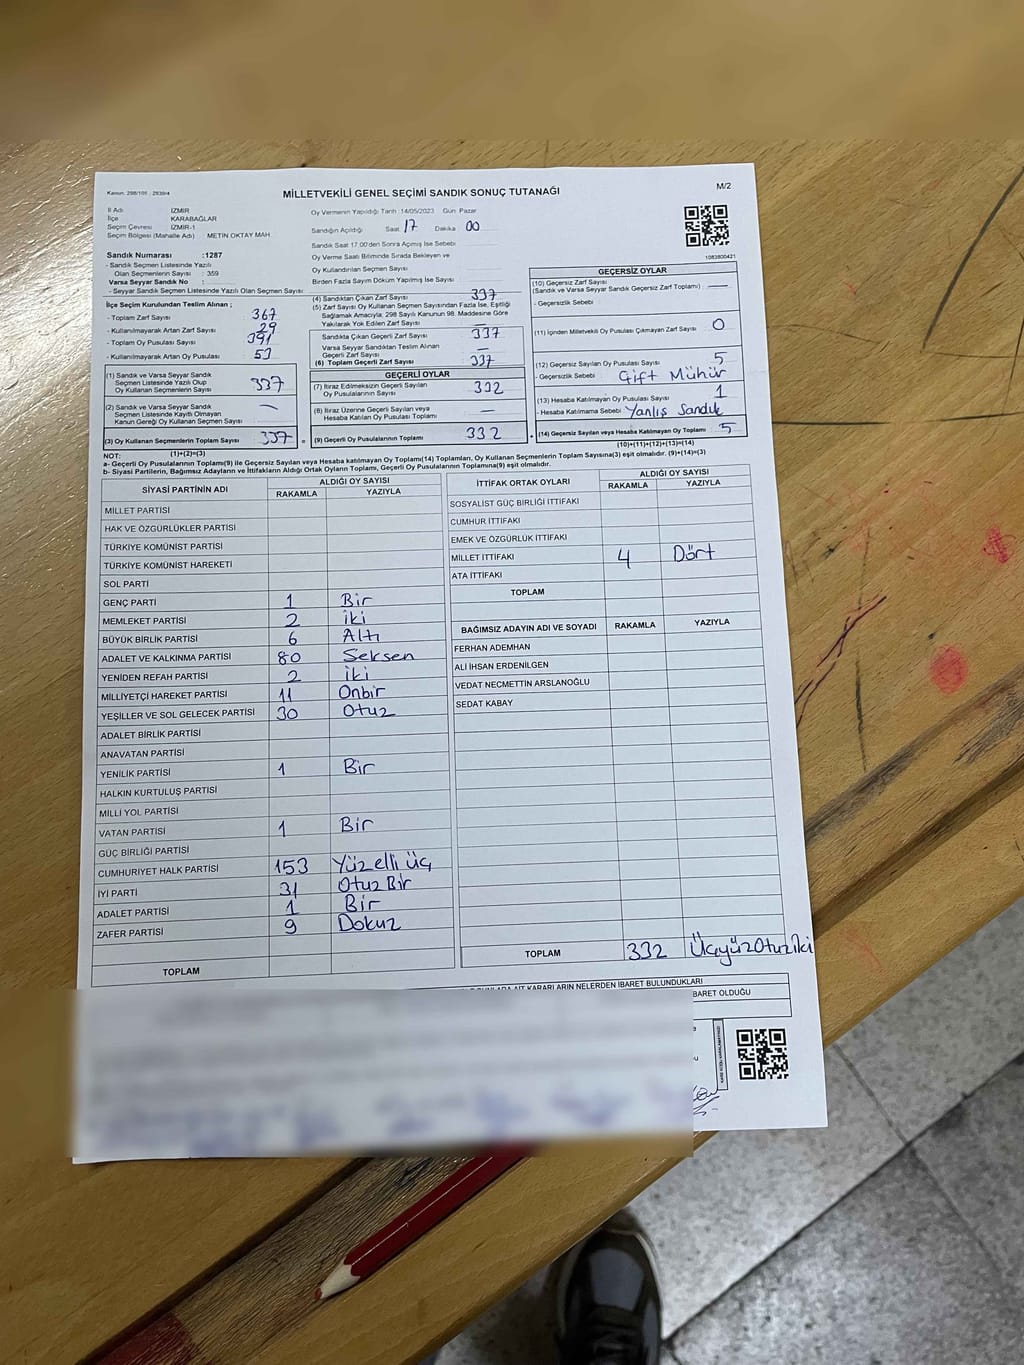 Kanun: 298/105 : 2839/4
MİLLETVEKİLİ GENEL SEÇİMİ SANDIK SONUÇ TUTANAĞI
M/2
İl Adı : İZMİR
İlçe : KARABAĞLAR
Seçim Çevresi : İZMİR-1
Seçim Bölgesi (Mahalle Adı) : METİN OKTAY MAH.
Oy Vermenin Yapıldığı Tarih :14/05/2023 Gün: Pazar
Sandığın Açıldığı Saat 17 Dakika 00
Sandık Saat 17.00'den Sonra Açılmış İse Sebebi
Oy Verme Saati Bitiminde Sırada Bekleyen ve
Oy Kullandırılan Seçmen Sayısı
Birden Fazla Sayım Döküm Yapılmış İse Sayısı
1083800421
Sandık Numarası :1287
- Sandık Seçmen Listesinde Yazılı
Olan Seçmenlerin Sayısı : 359
Varsa Seyyar Sandık No :
- Seyyar Sandık Seçmen Listesinde Yazılı Olan Seçmen Sayısı:
İlçe Seçim Kurulundan Teslim Alınan ;
- Toplam Zarf Sayısı 367
- Kullanılmayarak Artan Zarf Sayısı 29
- Toplam Oy Pusulası Sayısı
- Kullanılmayarak Artan Oy Pusulası 53
(1) Sandık ve Varsa Seyyar Sandık
Seçmen Listesinde Yazılı Olup
Oy Kullanan Seçmenlerin Sayısı 337
(2) Sandık ve Varsa Seyyar Sandık
Seçmen Listesinde Kayıtlı Olmayan
Kanun Gereği Oy Kullanan Seçmen Sayısı —
(3) Oy Kullanan Seçmenlerin Toplam Sayısı 337
(1)+(2)=(3)
(4) Sandıktan Çıkan Zarf Sayısı 337
(5) Zarf Sayısı Oy Kullanan Seçmen Sayısından Fazla İse, Eşitliği
Sağlamak Amacıyla; 298 Sayılı Kanunun 98. Maddesine Göre
Yakılarak Yok Edilen Zarf Sayısı —
Sandıkta Çıkan Geçerli Zarf Sayısı 337
Varsa Seyyar Sandıktan Teslim Alınan
Geçerli Zarf Sayısı —
(6) Toplam Geçerli Zarf Sayısı 337
GEÇERLİ OYLAR
(7) İtiraz Edilmeksizin Geçerli Sayılan
Oy Pusulalarının Sayısı 332
(8) İtiraz Üzerine Geçerli Sayılan veya
Hesaba Katılan Oy Pusulası Toplamı —
= (9) Geçerli Oy Pusulalarının Toplamı 332
GEÇERSİZ OYLAR
(10) Geçersiz Zarf Sayısı
(Sandık ve Varsa Seyyar Sandık Geçersiz Zarf Toplamı) : —
- Geçersizlik Sebebi
(11) İçinden Milletvekili Oy Pusulası Çıkmayan Zarf Sayısı 0
(12) Geçersiz Sayılan Oy Pusulası Sayısı 5
- Geçersizlik Sebebi Çift Mühür
(13) Hesaba Katılmayan Oy Pusulası Sayısı 1
- Hesaba Katılmama Sebebi Yanlış Sandık
+ (14) Geçersiz Sayılan veya Hesaba Katılmayan Oy Toplamı 5
(10)+(11)+(12)+(13)=(14)
NOT:
a- Geçerli Oy Pusulalarının Toplamı(9) ile Geçersiz Sayılan veya Hesaba Katılmayan Oy Toplamı(14) Toplamları, Oy Kullanan Seçmenlerin Toplam Sayısına(3) eşit olmalıdır. (9)+(14)=(3)
b- Siyasi Partilerin, Bağımsız Adayların ve İttifakların Aldığı Ortak Oyların Toplamı, Geçerli Oy Pusulalarının Toplamına(9) eşit olmalıdır.
SİYASİ PARTİNİN ADI ALDIĞI OY SAYISI
RAKAMLA YAZIYLA
MİLLET PARTİSİ
HAK VE ÖZGÜRLÜKLER PARTİSİ
TÜRKİYE KOMÜNİST PARTİSİ
TÜRKİYE KOMÜNİST HAREKETİ
SOL PARTİ
GENÇ PARTİ 1 Bir
MEMLEKET PARTİSİ 2 iki
BÜYÜK BİRLİK PARTİSİ 6 Altı
ADALET VE KALKINMA PARTİSİ 80 Seksen
YENİDEN REFAH PARTİSİ 2 iki
MİLLİYETÇİ HAREKET PARTİSİ 11 Onbir
YEŞİLLER VE SOL GELECEK PARTİSİ 30 Otuz
ADALET BİRLİK PARTİSİ
ANAVATAN PARTİSİ
YENİLİK PARTİSİ 1 Bir
HALKIN KURTULUŞ PARTİSİ
MİLLİ YOL PARTİSİ
VATAN PARTİSİ 1 Bir
GÜÇ BİRLİĞİ PARTİSİ
CUMHURİYET HALK PARTİSİ 153 Yüz elli üç
İYİ PARTİ 31 Otuz Bir
ADALET PARTİSİ 1 Bir
ZAFER PARTİSİ 9 Dokuz
TOPLAM
İTTİFAK ORTAK OYLARI ALDIĞI OY SAYISI
RAKAMLA YAZIYLA
SOSYALİST GÜÇ BİRLİĞİ İTTİFAKI
CUMHUR İTTİFAKI
EMEK VE ÖZGÜRLÜK İTTİFAKI
MİLLET İTTİFAKI 4 Dört
ATA İTTİFAKI
TOPLAM
BAĞIMSIZ ADAYIN ADI VE SOYADI RAKAMLA YAZIYLA
FERHAN ADEMHAN
ALİ İHSAN ERDENİLGEN
VEDAT NECMETTİN ARSLANOĞLU
SEDAT KABAY
TOPLAM 332 ÜçyüzOtuziki
KARARLARIN NELERDEN İBARET BULUNDUKLARI
BARET OLDUĞU